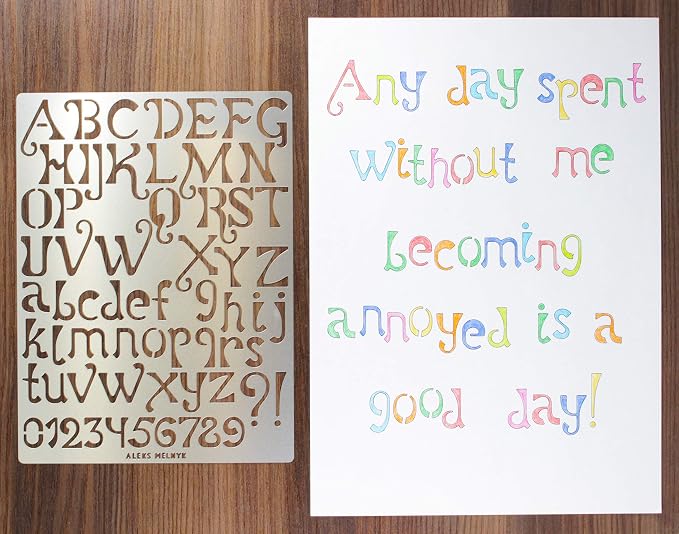 ABCDEFG
HIJKLMN
OPQRST
UVWXYZ
abcdefghij
klmnopqrs
tuvwxyz?!
0123456789
ALEKS MELNYK
Any day spent
without me
becoming
annoyed is a
good day!